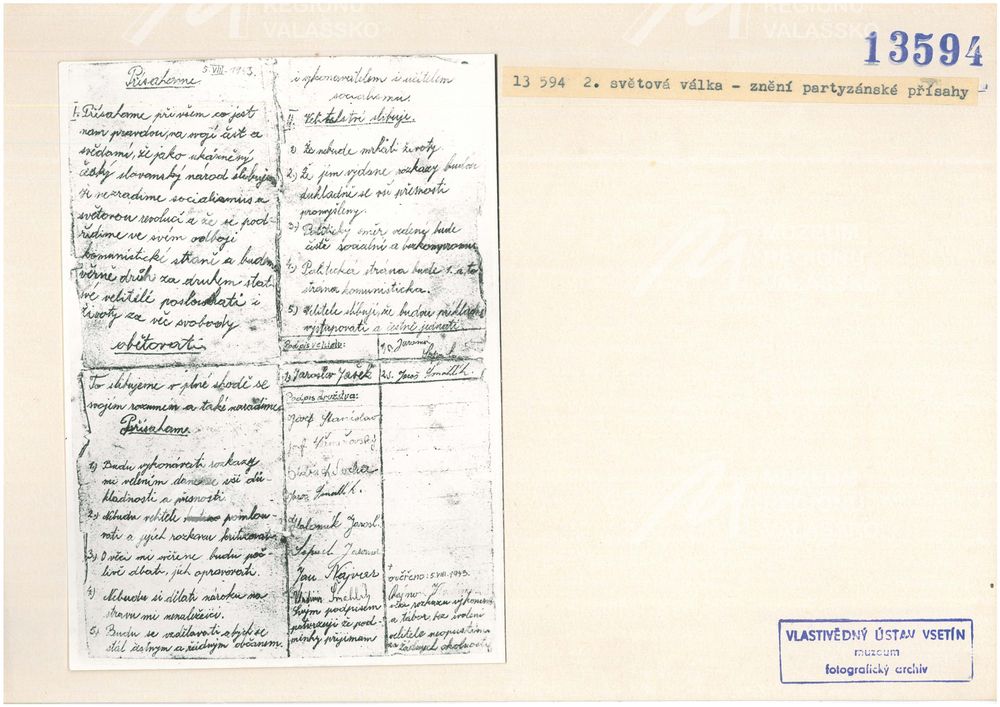 13594
13 594 2. světová válka - znění partyzánské přísahy
Přísaháme
5.VIII.1943.
I. Přísaháme při všem co jest
nám pravdou, na svojí čest a
svědomí, že jako ukázněný
český slovanský národ slibujem
že nezradíme socialismus a
světovou revoluci a že se pod-
řídíme ve svém odboji
komunistické straně a budem
věrně druh za druhem stát
své velitele poslouchati i
životy za věc svobody
obětovati.
To slibujeme v plné shodě se
svojím rozumem a také
Přísaháme
1) Budu vykonávati rozkazy
mi velením dané se vší dů-
kladností a přesností.
2.) Nebudu velitele pomlou-
vati a jejich rozkazy kritisovati.
3) O věci mi svěřené budu peč-
livě dbáti, jich opravovati.
4) Nebudu si dělati nároku na
stravu mi nenáležící.
5) Budu se vzdělávati abych se
stál čestným a řádným občanem
i vykonavatelem i učitelem
socialismu.
II. Velitelství slibuje.
1) Že nebude mrhati životy.
2.) Že jím vydané rozkazy budou
důkladně se vší přesností
promyšleny.
3) Politický směr vedení bude
čistě sociální a bezkompromisní
4.) Politická strana bude 1. a to
strana komunistická.
5) Velitelé slibují, že budou příkladně
vystupovati a čestně jednati.
Podpis velitelů:
1) Jaroslav Jašek
2). Jaroš Smatlí.
Podpis družstva:
Josef Stanislav
Jaroš Smatlí.
Jarosl.
Sapuch Jaromír
Jan Najvar
Svým podpisem
potvrzuji že pod-
mínky přijímám
ověřeno: 5.VIII.1943.
rozkazu
a tábor bez svolení
velitele neopustím
VLASTIVĚDNÝ ÚSTAV VSETÍN
muzeum
fotografický archiv